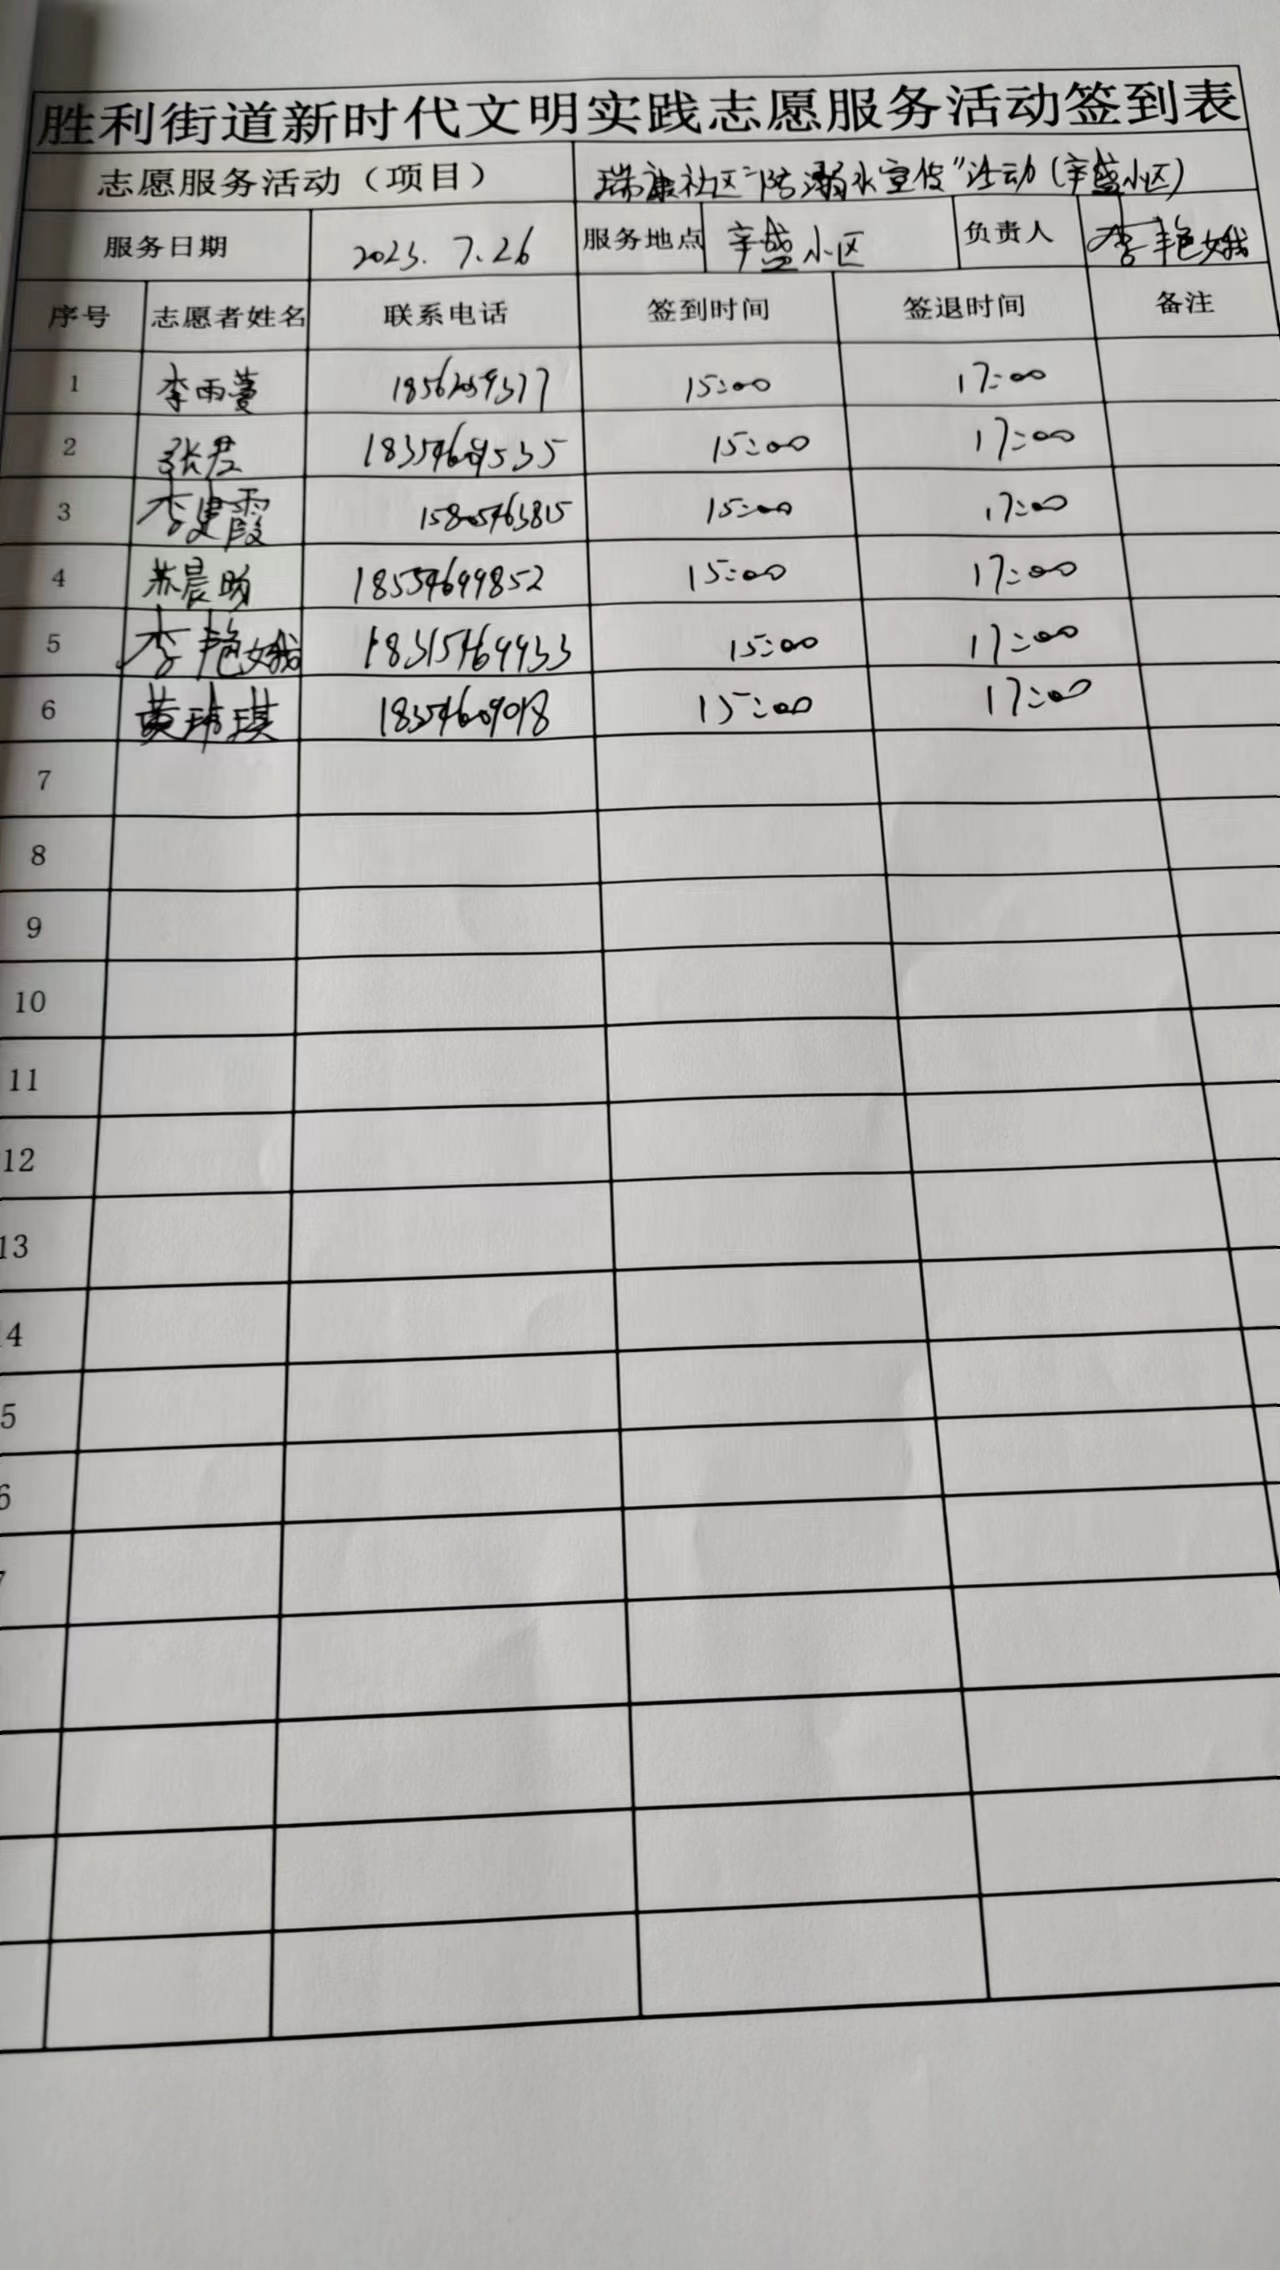 胜利街道新时代文明实践志愿服务活动签到表
志愿服务活动（项目） 瑞康社区"防溺水宣传"活动(辛盛小区)
服务日期 2023.7.26 服务地点 辛盛小区 负责人 李艳娥
序号 志愿者姓名 联系电话 签到时间 签退时间 备注
1 李雨蔓 15:00 17:00
2 张君 18354609535 15:00 17:00
3 李建霞 15805463815 15:00 17:00
4 苏晨 18554699852 15:00 17:00
5 李艳娥 18315469933 15:00 17:00
6 黄琪 18354609018 15:00 17:00
7
8
9
10
11
12
13
4
5
6